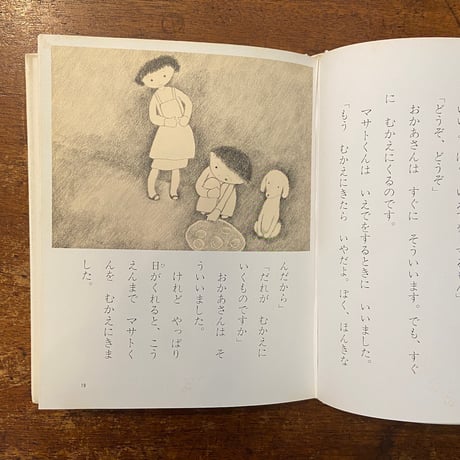 「どうぞ、どうぞ」
おかあさんは すぐに そういいます。でも、すぐ
に むかえにくるのです。
マサトくんは いえでをするときに いいました。
「もう むかえにきたら いやだよ。ぼく、ほんきな
んだから」
「だれが むかえに
いくものですか」
おかあさんは そ
ういいました。
けれど やっぱり
日がくれると、こう
えんまで マサトく
んを むかえにきま
した。